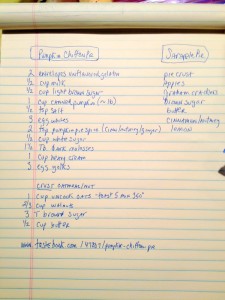 Pumpkin Chiffon Pie
2 envelopes unflavored gelatin
1/2 cup milk
1/2 cup light brown sugar
1 cup canned pumpkin (~ 1 lb)
1/2 tsp salt
3 egg whites
2 tsp pumpkin pie spice (cinn/nutmeg/ginger)
1/2 cup white sugar
1 1/2 Tb. dark molasses
1 cup heavy cream
3 egg yolks
CRUST OATMEAL/NUT
1 cup uncooked oats - toast 5 min 350°
2/3 cup walnuts
3 T brown sugar
1/4 cup butter
www.tastebook.com
pumpkin-chiffon-pie
Pie
pie crust
apples
graham crackers
brown sugar
butter
cinnamon/nutmeg
lemon